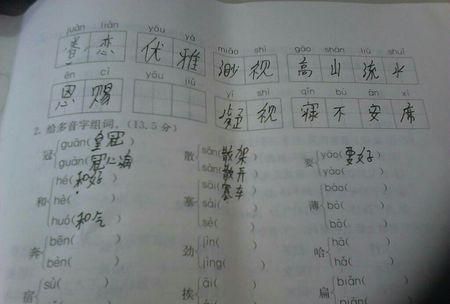 juàn liàn yōu yǎ miǎo shì gāo shān liú shuǐ
眷 恋 优 雅 渺 视 高 山 流 水
ēn cì yōu yí shì qǐn bù ān xí
恩 赐 疑 视 寝 不 安 席
2. 给多音字组词。(13.5分)
冠 guān(皇冠) 散 sǎn(散架) 要 yào(要好)
guàn(冠心病) sàn(散开) yāo( )
和 hé(和好) 塞 sāi(塞车) 薄 báo( )
hè( ) sài( ) bó( )
huó(和气) sè( ) bò( )
奔 bēn( ) 劲 jìn( ) 哈 hā( )
bèn( ) jìng( ) hǎ( )
宿 sù( ) 挨 āi( ) 扁 biǎn( )